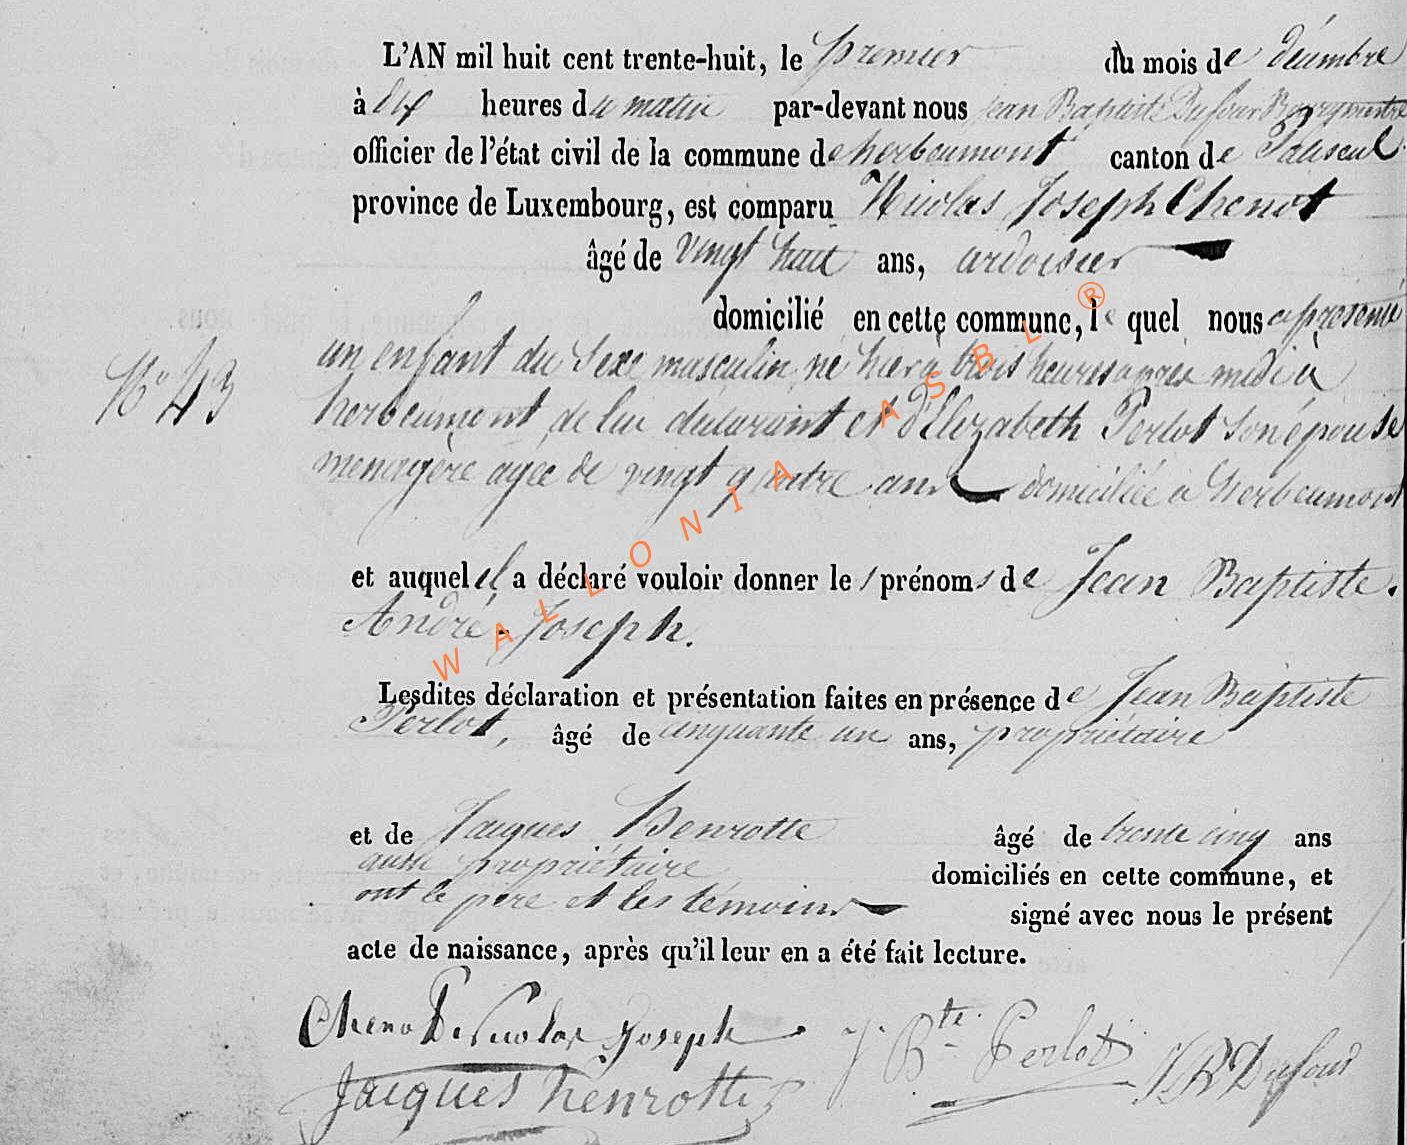 L'AN mil huit cent trente-huit, le premier du mois de décembre
à dix heures du matin par-devant nous jean Baptiste Dufour Bourgmestre
officier de l'état civil de la commune de herbeumont canton de Paliseul
province de Luxembourg, est comparu Nicolas Joseph Chenot
âgé de vingt huit ans, ardoisier
domicilié en cette commune, le quel nous a présenté
un enfant du sexe masculin né hier à trois heures après midi à
N° 43
herbeumont, de lui déclarant et d'Elizabeth Perlot son épouse
menagère agée de vingt quatre ans domiciliée à herbeumont
et auquel il a déclaré vouloir donner les prénoms de Jean Baptiste.
André-Joseph.
Lesdites déclaration et présentation faites en présence de Jean Baptiste
Perlot, âgé de cinquante un ans, propriétaire
et de Jacques Henrotte âgé de trente cinq ans
aussi propriétaire domiciliés en cette commune, et
ont le père et les témoins signé avec nous le présent
acte de naissance, après qu'il leur en a été fait lecture.
Chenot Nicolas Joseph J. Bte. Perlot JB Dufour
Jacques henrotte
WALLONIA ASBL ®